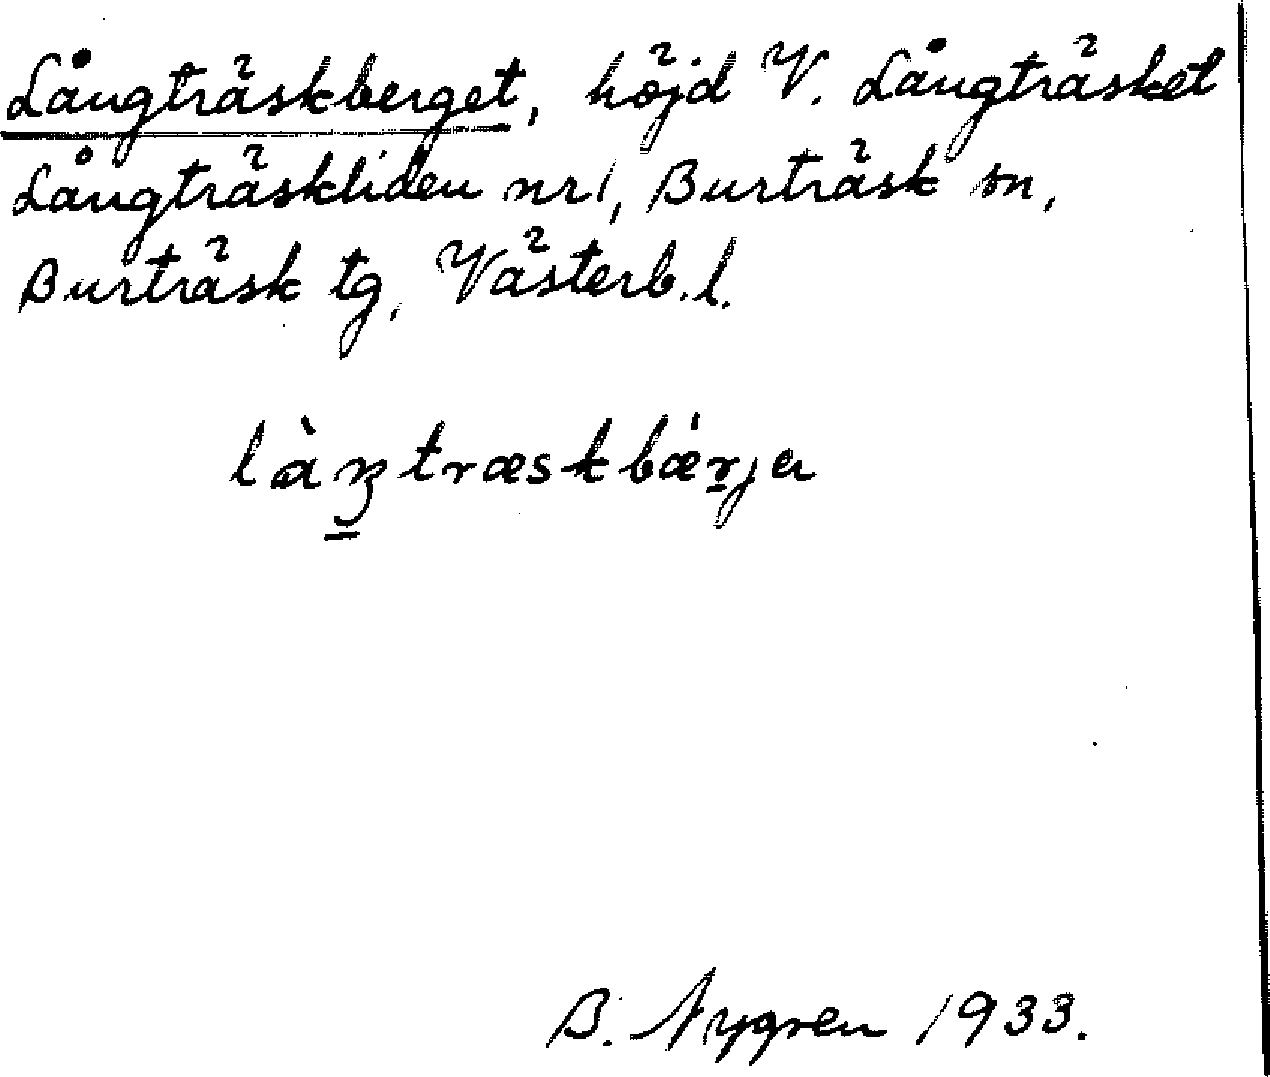 Långträskberget, höjd V. Långträsket
Långträskliden nr 1, Burträsk sn,
Burträsk tg, Västerb.l.
làŋtræskbǽrja
B. Nygren 1933.